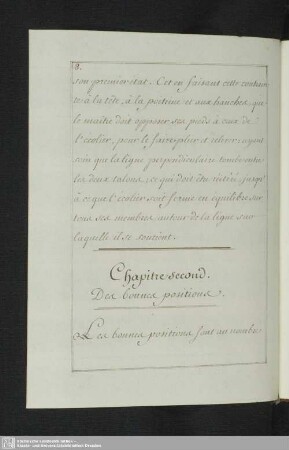 8.
son premier état. Cet en faisant cette contrain
te à la tête, à la poitrine et aux hanches que
le maître doit opposer ses poids à ceux de
l'ecolier, pour le faire plier et élever, ayant
soin que la ligne perpendiculaire tombe entre
les deux talons, ce qui doit être réitéré, jusqu'
à ce que l'écolier soit ferme en equilibre sur
tous ses membres autour de la ligne sur
laquelle il se soutient.
Chapitre second.
Des bonnes positions.
Les bonnes positions sont au nombre